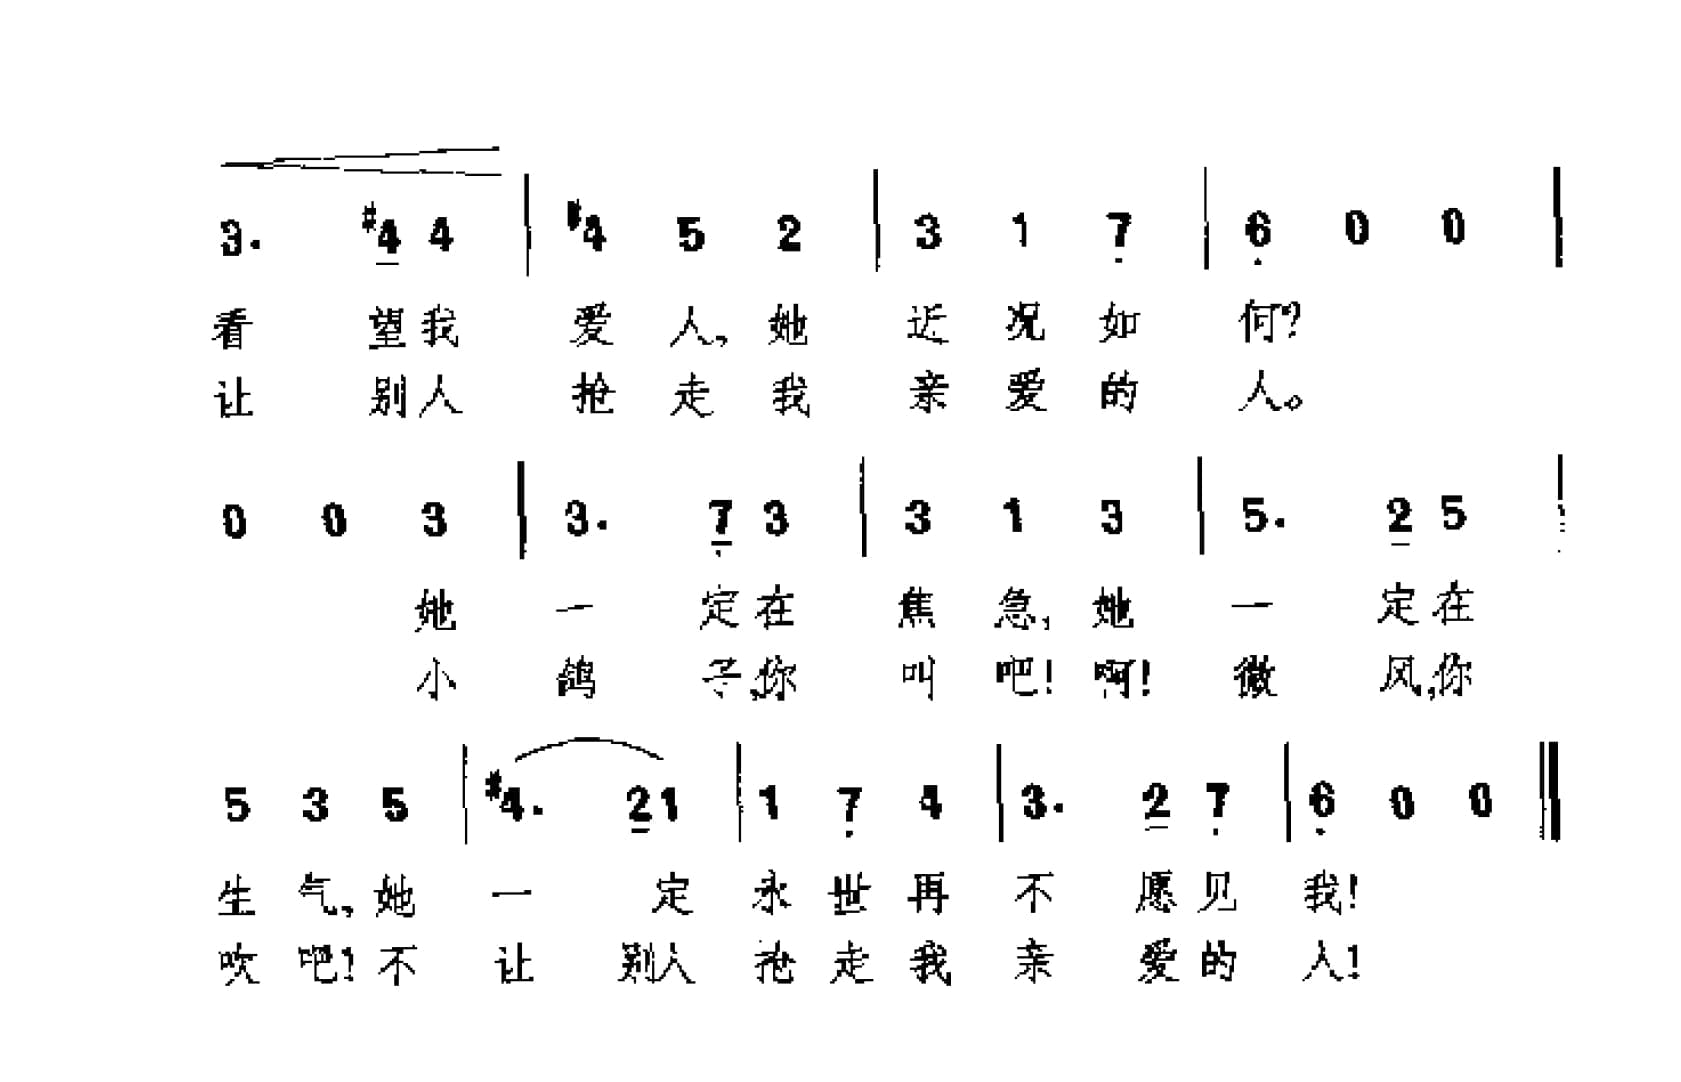 3. #4 4 | #4 5 2 | 3 1 7 | 6 0 0 |
看 望我 爱 人，她 近 况 如 何？
让 别人 抢 走 我 亲 爱 的 人。
0 0 3 | 3. 7 3 | 3 1 3 | 5. 2 5 |
她 一 定在 焦 急，她 一 定在
小 鸽 子，你 叫 吧！啊！微 风，你
5 3 5 | #4. 2 1 | 1 7 4 | 3. 2 7 | 6 0 0 ‖
生 气，她 一 定 永 世 再 不 愿 见 我！
吹 吧！不 让 别人 抢 走 我 亲 爱 的 人！